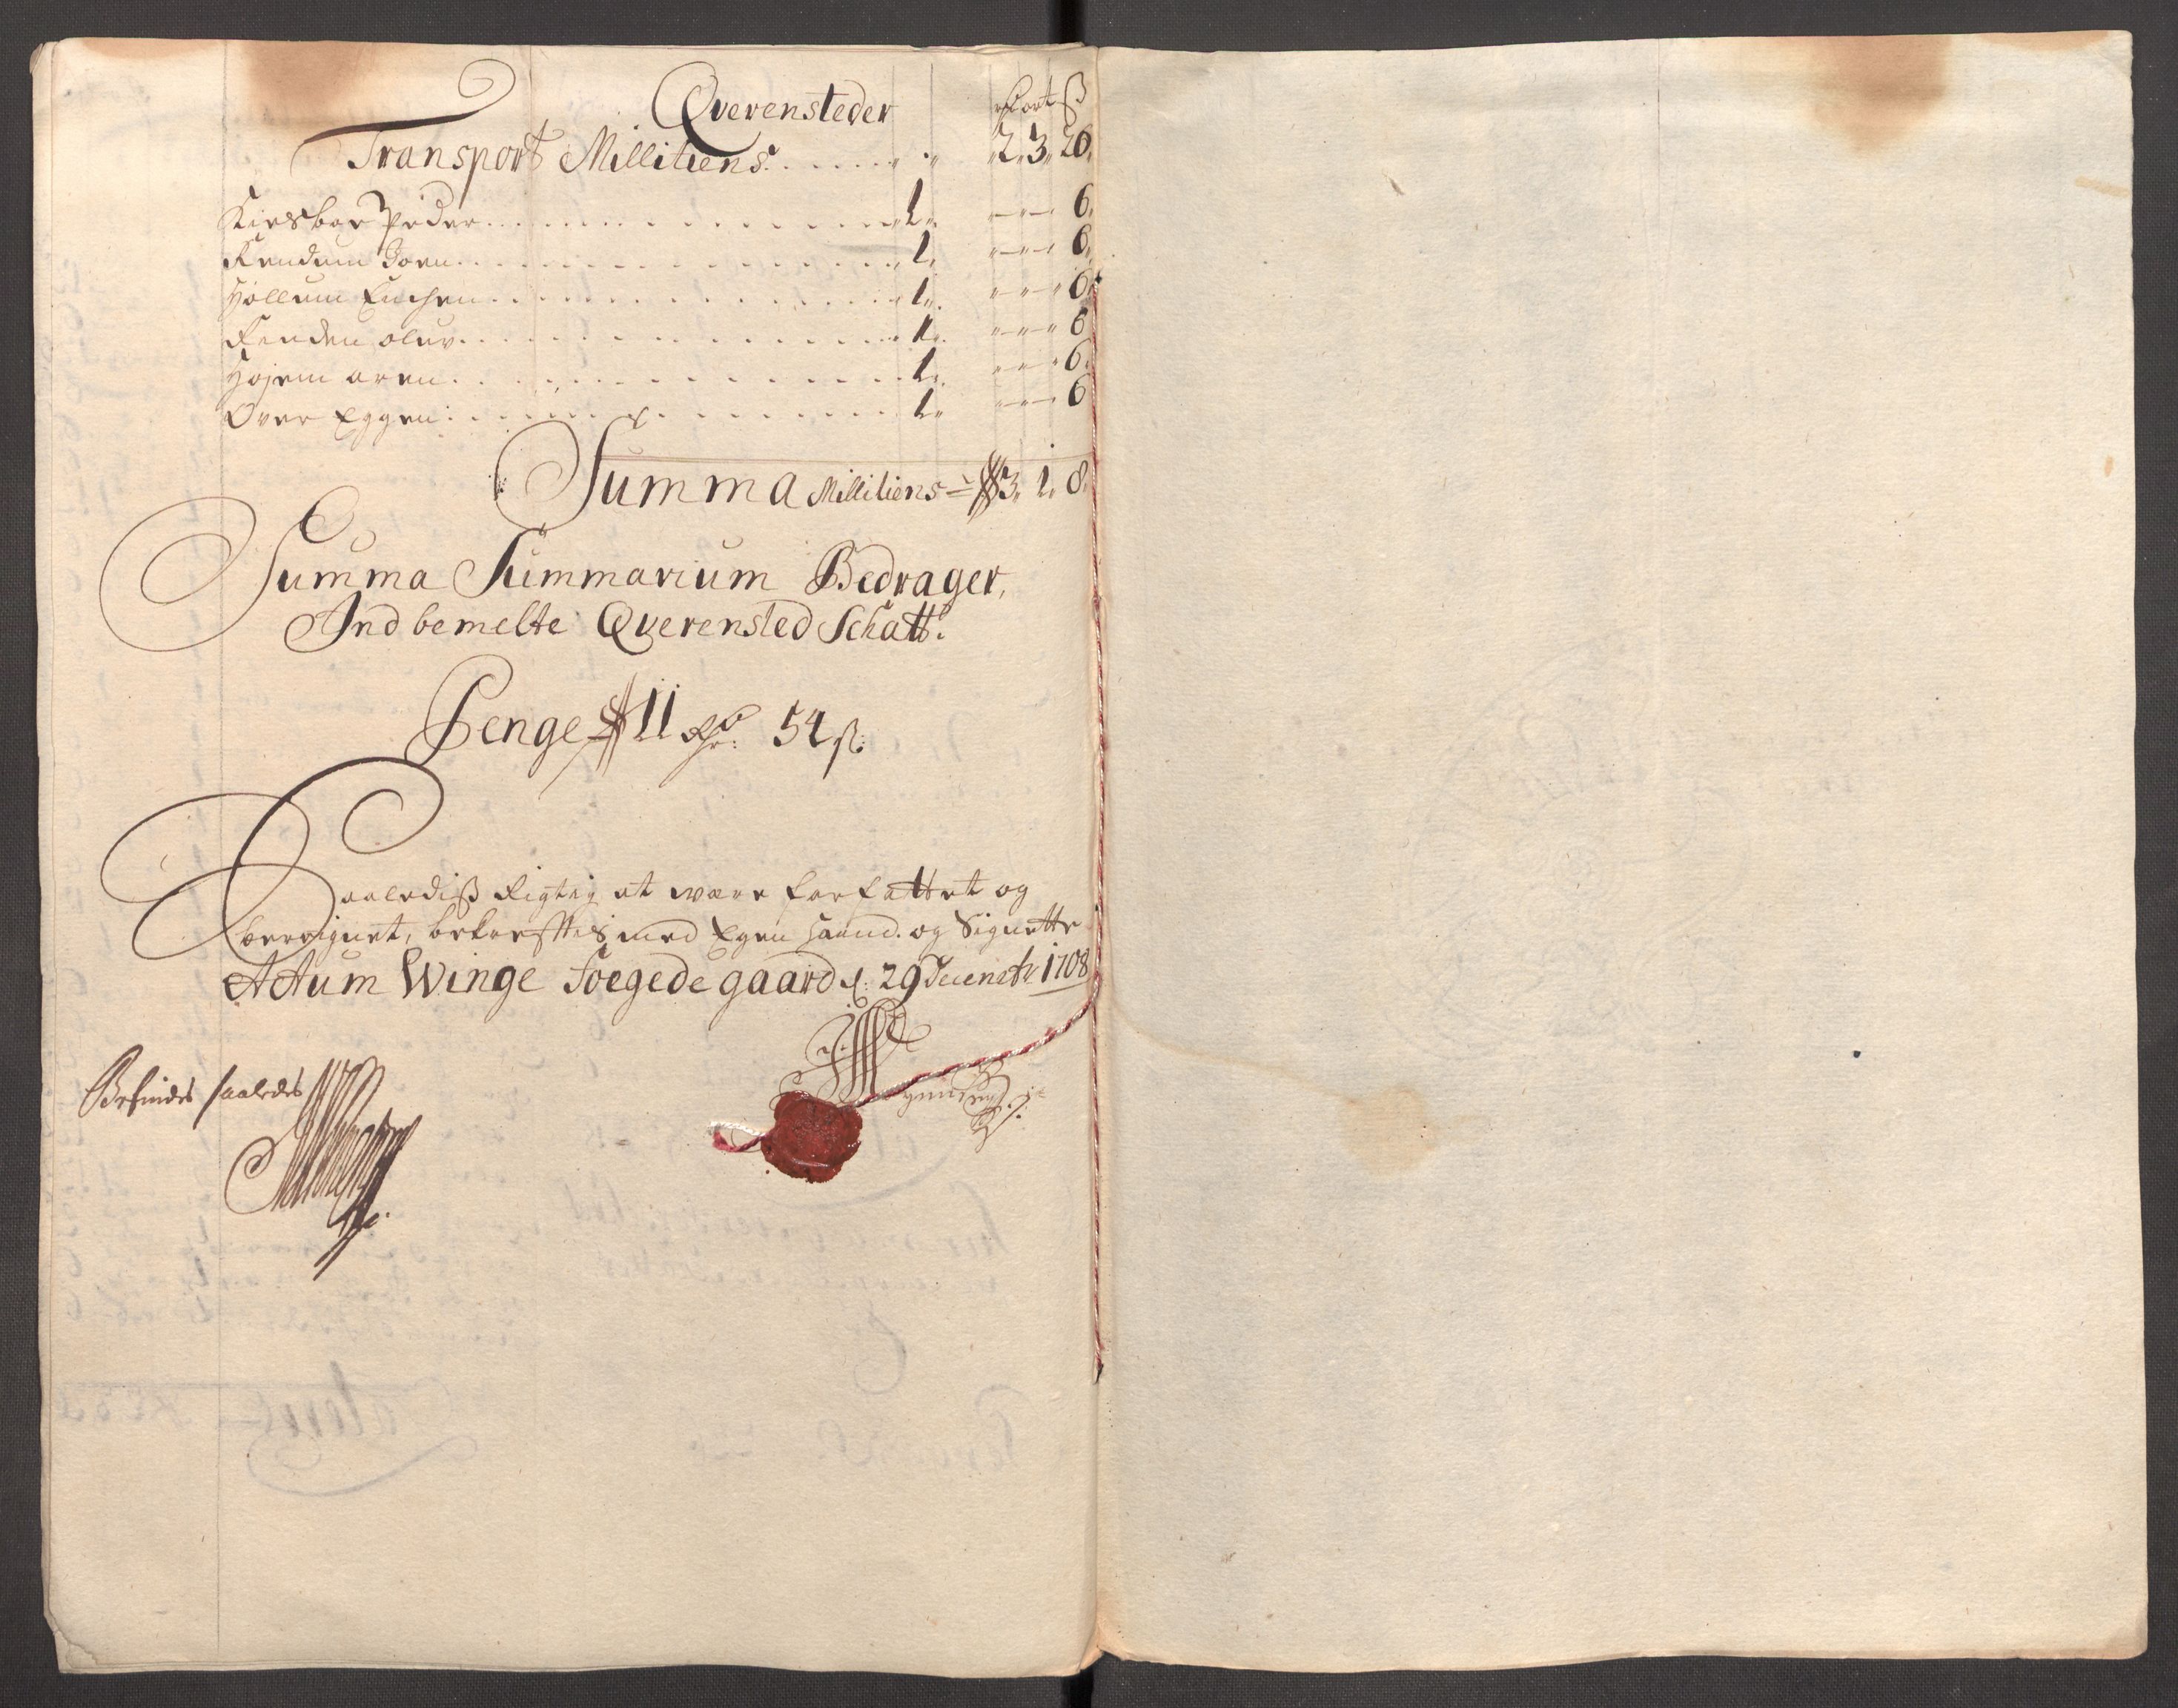 Qverensteder
rd ort ß
Transport Millitiens . . . . . 2. 3. 20.
Kiesboe Peder . . . . . 1. 6.
Rendum Joen . . . . . 1. 6.
Hollum . . . . . 1. 6.
Renden oluv . . . . . 1. 6.
Hojem aren . . . . . 1. 6.
Over Eggen . . . . . 1. 6
Summa Millitiens = 3. 1. 8.
Summa Summarium Bedrager,
Ind bemelte Qverensted Schatt.
Penge 11 54 ß.
Saalediß Rigtig at være forfattet og
beregnet, bekreftes med Egen Haand. og Signette
Actum Winge Foegede gaard d. 29 Decembr 1708
Befindes saaledes